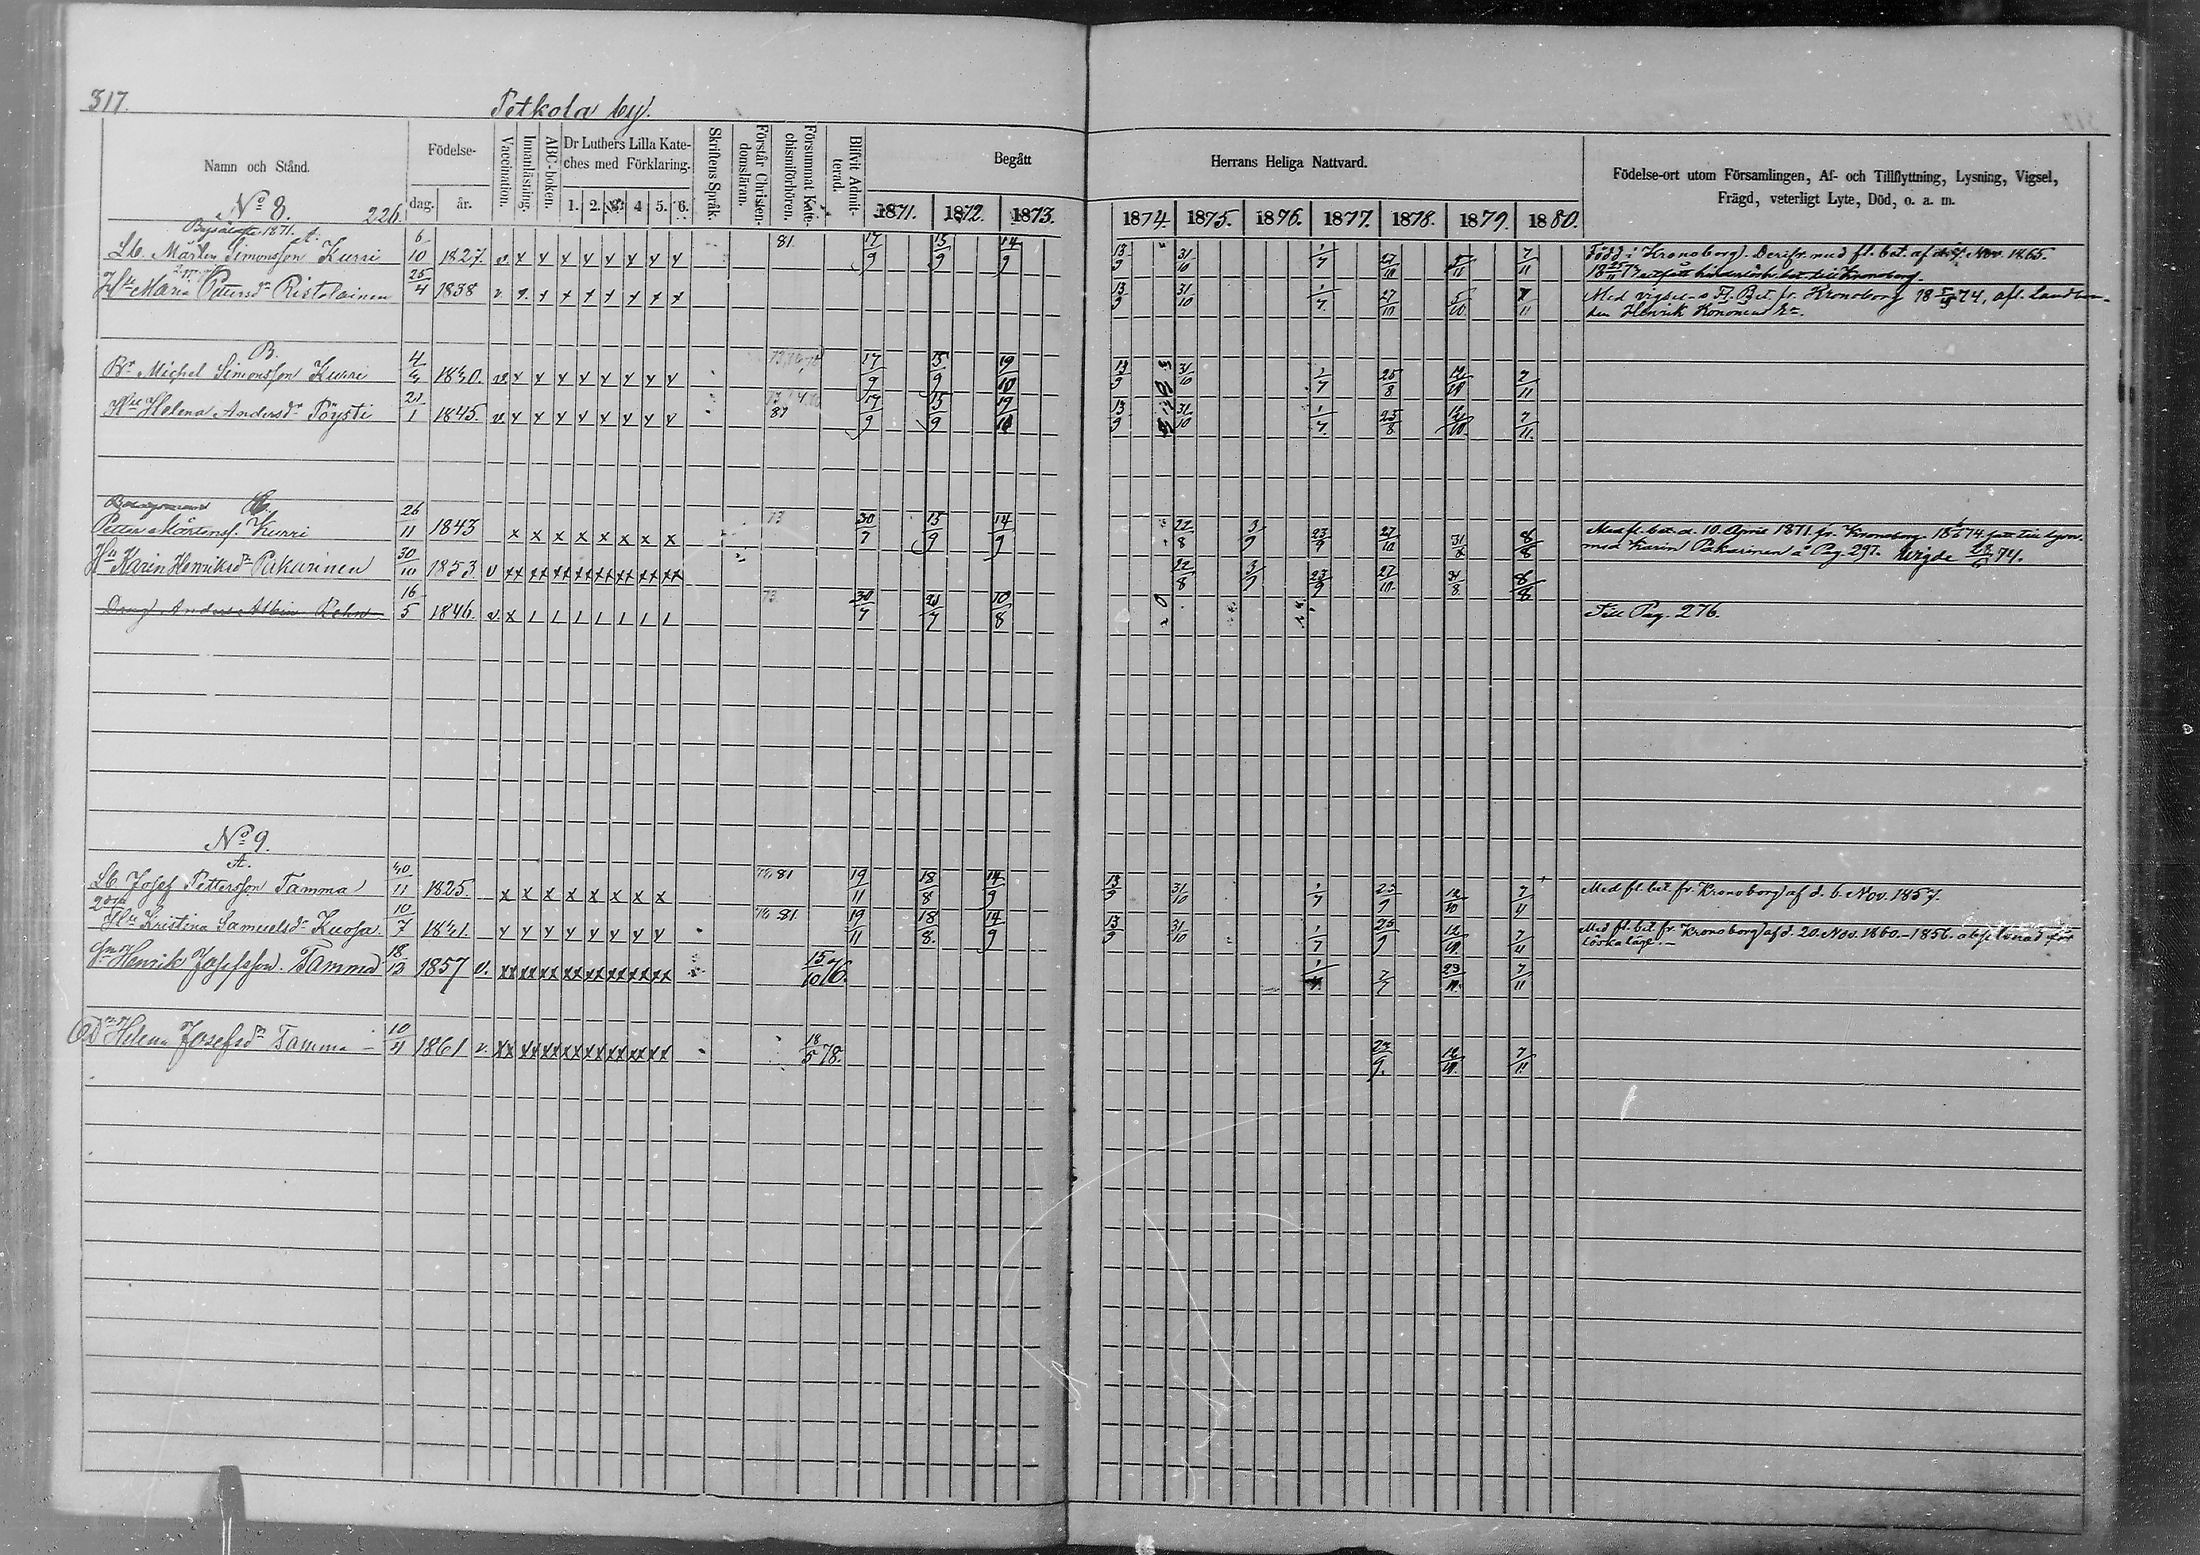 317.
Petkola by.
Namn och Stånd.
Födelse-
dag. år.
Vaccination.
Innanläsning.
ABC-boken.
Dr Luthers Lilla Kate-
ches med Förklaring.
1. 2. 3. 4 5. 6.
Skriftens Språk.
Förstår Christen-
domsläran.
Försummat Kate-
chismiförhören.
Blifvit Admit-
terad.
Begått
1871. 1872. 1873.
Herrans Heliga Nattvard.
1874. 1875. 1876. 1877. 1878. 1879. 1880.
Födelse-ort utom Församlingen, Af- och Tillflyttning, Lysning, Vigsel,
Frägd, veterligt Lyte, Död, o. a. m.
No 8. 226.
1871. A.
Lb. Mårten Simonsson Kurri 6/10 1827. v. 81 17/9 15/9 14/9 13/9 31/10 1/7 27/10 5/11 7/11 Född i Kronoborg. Derifr. med fl. bet. af d. Nov. 1865.
till Kronoborg
Hu Maria Pettersdr Ristolainen 25/4 1838 v. 13/9 31/10 1/7 27/10 5/10 7/11 Med vigsel- o Fl. Bet. fr. Kronoborg 18 74, afl. Landbon-
den Henrik Kononens Ea.
B.
Br Michel Simonsson Kurri 4/4 1840. v. 17/9 15/9 19/10 13/9 31/10 1/7 25/8 12/10 7/11
Hu Helena Andersdr Pöysti 21/1 1845. v. 81 17/9 15/9 19/10 13/9 31/10 1/7 25/8 12/10 7/11.
Petter Mårtens. Kurri 26/11 1843 73 30/7 15/9 14/9 22/8 3/9 23/9 27/10 31/8 8/8 Med fl. bet. d. 10. April 1871. fr. Kronoborg. 18 74. till lysn.
med Karin Pakarinen å Pag. 297. Wigde 74.
Hu Karin Henriksdr Pakarinen 30/10 1853. v 22/8 3/9 23/9 27/10. 31/8. 8/8
Dreng Anders 16/5 1846. v. 73 30/7 21/7 10/8 Till Pag. 276.
No 9.
A.
Lb Josef Pettersson Tamma 30/11 1825. 81 19/11 18/8 14/9 13/9 31/10 1/7 23/9 12/10 7/11 Med fl. bet. fr. Kronoborg af d. 6. Nov. 1857.
2dra
Hu Kristina Samuelsdr Kuosa. 10/7 1841. 78 81. 19/11 18/8. 14/9 13/9 31/10 1/7 23/9 12/10. 7/11 Med fl. bet. fr. Kronoborg af d. 20. Nov. 1860.- 1856. absolverad för
löskaläge.-
Sr Henrik Josefsson. Tamma 18/12 1857 v. 15/10 76. 1/7. 7/7 23/11. 7/11
Dr Helena Josefsdr Tamma - 10/4 1861 v. 18/5 78. 23/9. 12/10. 7/11